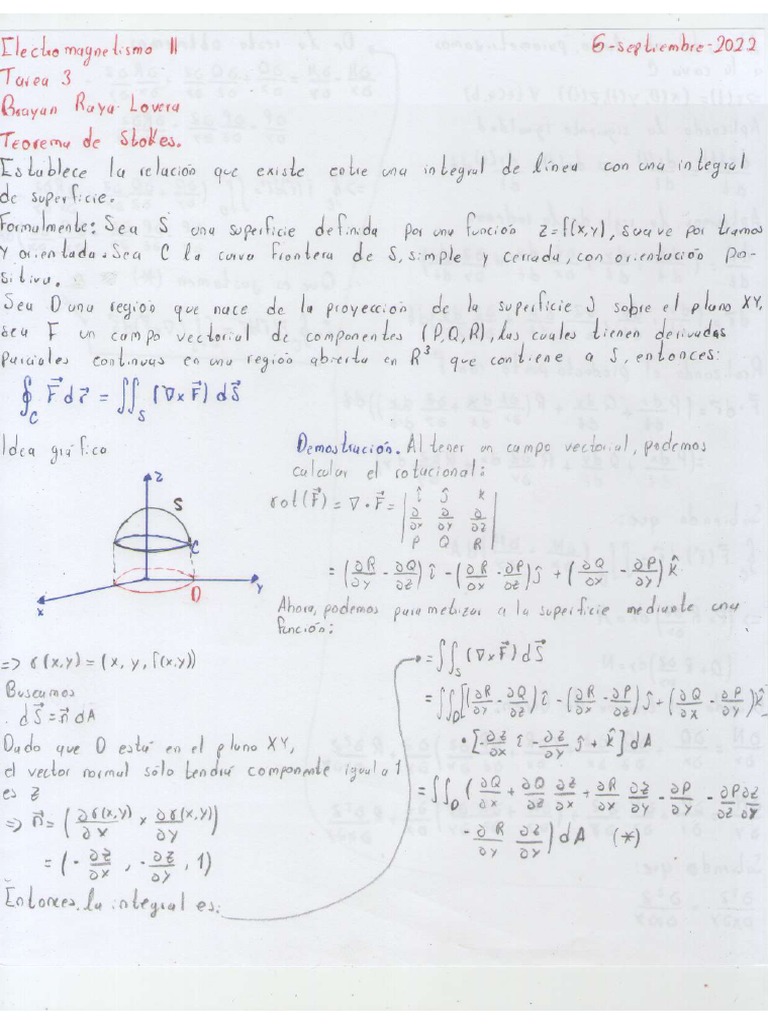 Electromagnetismo II
6-septiembre-2022
Tarea 3
Brayan Raya Lovera
Teorema de Stokes.
Establece la relación que existe entre una integral de línea con una integral
de superficie.
Formalmente: Sea S una superficie definida por una función z=f(x,y), suave por tramos
y orientada. Sea C la curva frontera de S, simple y cerrada, con orientación po-
sitiva.
Sea D una región que nace de la proyección de la superficie S sobre el plano XY,
sea F un campo vectorial de componentes (P,Q,R), las cuales tienen derivadas
parciales continuas en una región abierta en R³ que contiene a S, entonces:
∮_C F⃗ dr⃗ = ∬_S (∇×F⃗) dS⃗
Idea gráfica
z
S
C
D
x
y
Demostración. Al tener un campo vectorial, podemos
calcular el rotacional:
rot(F⃗) = ∇ • F⃗ = | î ĵ k̂ |
| ∂/∂x ∂/∂y ∂/∂z |
| P Q R |
= (∂R/∂y - ∂Q/∂z) î - (∂R/∂x - ∂P/∂z) ĵ + (∂Q/∂x - ∂P/∂y) k̂
Ahora, podemos parametrizar a la superficie mediante una
función:
=> r(x,y) = (x, y, f(x,y))
Buscamos
dS⃗ = n⃗ dA
Dado que D está en el plano XY,
el vector normal sólo tendrá componente igual a 1
es z
=> n⃗ = (∂r(x,y)/∂x × ∂r(x,y)/∂y)
= (-∂z/∂x, -∂z/∂y, 1)
Entonces, la integral es:
= ∬_S (∇×F⃗) dS⃗
= ∬_D [(∂R/∂y - ∂Q/∂z) î - (∂R/∂x - ∂P/∂z) ĵ + (∂Q/∂x - ∂P/∂y) k̂]
• [∂z/∂x î - ∂z/∂y ĵ + k̂] dA
= ∬_D (∂Q/∂x + ∂Q/∂z ∂z/∂x + ∂R/∂x ∂z/∂y - ∂P/∂y - ∂P/∂z ∂z/∂y
- ∂R/∂y ∂z/∂y) dA (*)